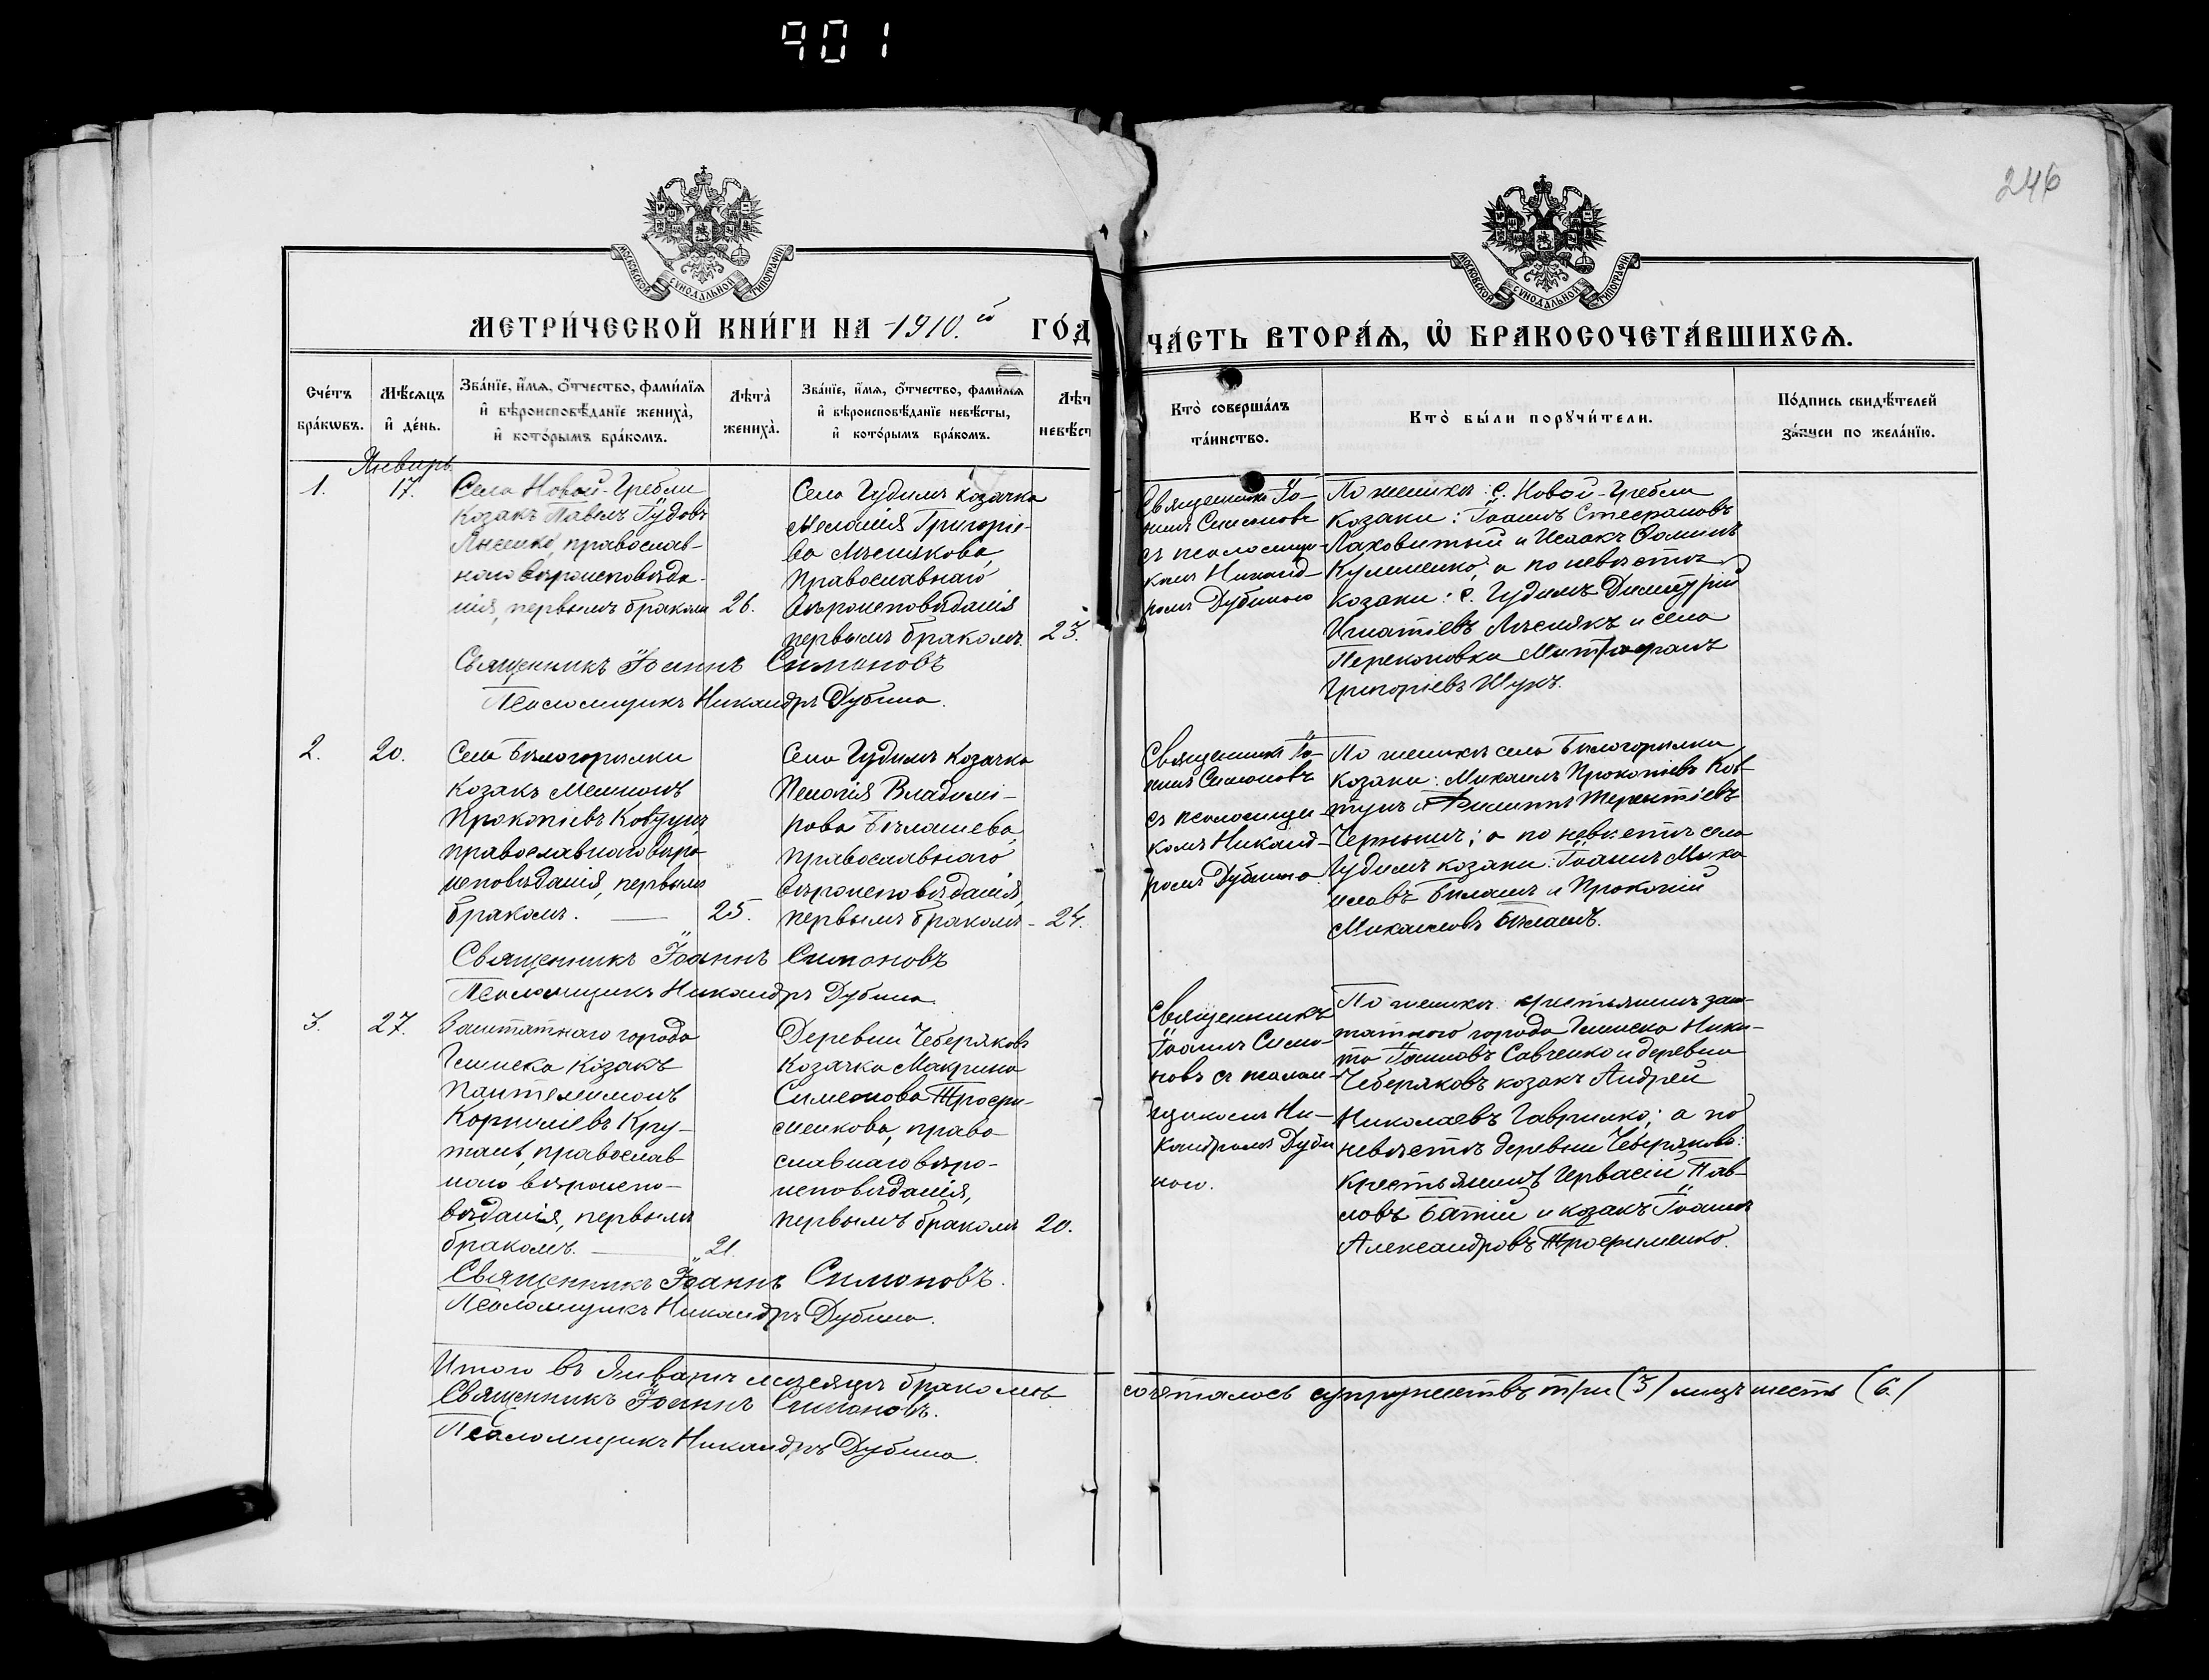 901
246
МОСКОВСКОЙ СУНОДАЛЬНОЙ ТИПОГРАФІИ
МОСКОВСКОЙ СУНОДАЛЬНОЙ ТИПОГРАФІИ
МЕТРИ́ЧЕСКОЙ КНИ́ГИ НА 1910.й ГО́Д
ЧА́СТЬ ВТОРА́Ѧ, Ѽ БРАКОСОЧЕТА́ВШИХСѦ.
Сче́тъ бра́кѡвъ.
Мѣ́сяцъ и҆ де́нь.
Зва́нїе, и҆́мѧ, ѻ҆́тчество, фами́лїѧ
и҆ вѣроисповѣ́данїе жениха̀,
и҆ кото́рымъ бра́комъ.
Лѣ́та̀
жениха̀.
Зва́нїе, и҆́мѧ, ѻ҆́тчество, фами́лїѧ
и҆ вѣроисповѣ́данїе невѣ́сты,
и҆ кото́рымъ бра́комъ.
Лѣ́т
невѣ́ст
Кто̀ соверша́лъ
та́инство.
Кто̀ бы́ли порꙋчи́тели.
По́дпись свидѣ́телей
за́писи по жела́нїю.
Январь
1.
17.
Села Новой-Гребли
козакъ Павелъ Іудовъ
православ-
наго вѣроисповѣда-
нія, первымъ бракомъ
26.
Села Гудимъ козачка
Меланія Григоріе-
ва Мѣсякова,
Православнаго
вѣроисповѣданія
первымъ бракомъ.
23.
Священникъ Іо-
аннъ Симоновъ
съ псаломщи-
комъ Никанд-
ромъ Дубиною
По женихѣ: с. Новой-Гребли
козаки: Іоаннъ Стефановъ
Лаховитый и Исаакъ Ѳоминъ
Кулиненко, а по невѣстѣ
козаки: с. Гудимъ Димитрій
Игнатіевъ Мѣсякъ и села
Перекоповки Митрофанъ
Григоріевъ Шукъ.
Священникъ Іоаннъ Симоновъ
Псаломщикъ Никандръ Дубина.
2.
20.
Села Бѣлогорилки
козакъ Мемнонъ
Прокопіевъ Ковтунъ
православнаго вѣро-
исповѣданія, первымъ
бракомъ.
25.
Села Гудимъ козачка
Пелагія Владимі-
рова Бѣлашева,
Православнаго
вѣроисповѣданія,
первымъ бракомъ
24.
Священникъ Іо-
аннъ Симоновъ
съ псаломщи-
комъ Никанд-
ромъ Дубиною
По женихѣ села Бѣлогорилки
козаки: Михаилъ Прокопіевъ Ков-
тунъ и Филиппъ Терентіевъ
Чернышъ; а по невѣстѣ села
Гудимъ козаки: Іоаннъ Миха
иловъ Билашъ и Прокопій
Михаиловъ Бѣлашъ.
Священникъ Іоаннъ Симоновъ
Псаломщикъ Никандръ Дубина
3.
27.
Заштатнаго города
Глинска козакъ
Пантелимонъ
Корниліевъ Кру-
тань, православ
наго вѣроиспо-
вѣданія, первымъ
бракомъ.
21.
Деревни Чеберяковъ
козачка Макрина
Симеонова Трофи-
менкова, право-
славнаго вѣро-
исповѣданія,
первымъ бракомъ
20.
Священникъ
Іоаннъ Симо-
новъ съ псалом-
щикомъ Ни-
кандромъ Дуби
ною.
По женихѣ: крестьянинъ заш-
татнаго города Глинска Ники-
та Іоанновъ Савченко и деревни
Чеберяковъ козакъ Андрей
Николаевъ Гаврилко; а по
невѣстѣ деревни Чеберяковъ:
крестьянинъ Гервасій Пав-
ловъ Батій и козакъ Іоаннъ
Александровъ Трофименко.
Священникъ Іоаннъ Симоновъ.
Псаломщикъ Никандръ Дубина.
Итого въ Январѣ мѣсяцѣ бракомъ сочеталось супружествъ три (3) лицъ шесть (6.)
Священникъ Іоаннъ Симоновъ.
Псаломщикъ Никандръ Дубина.